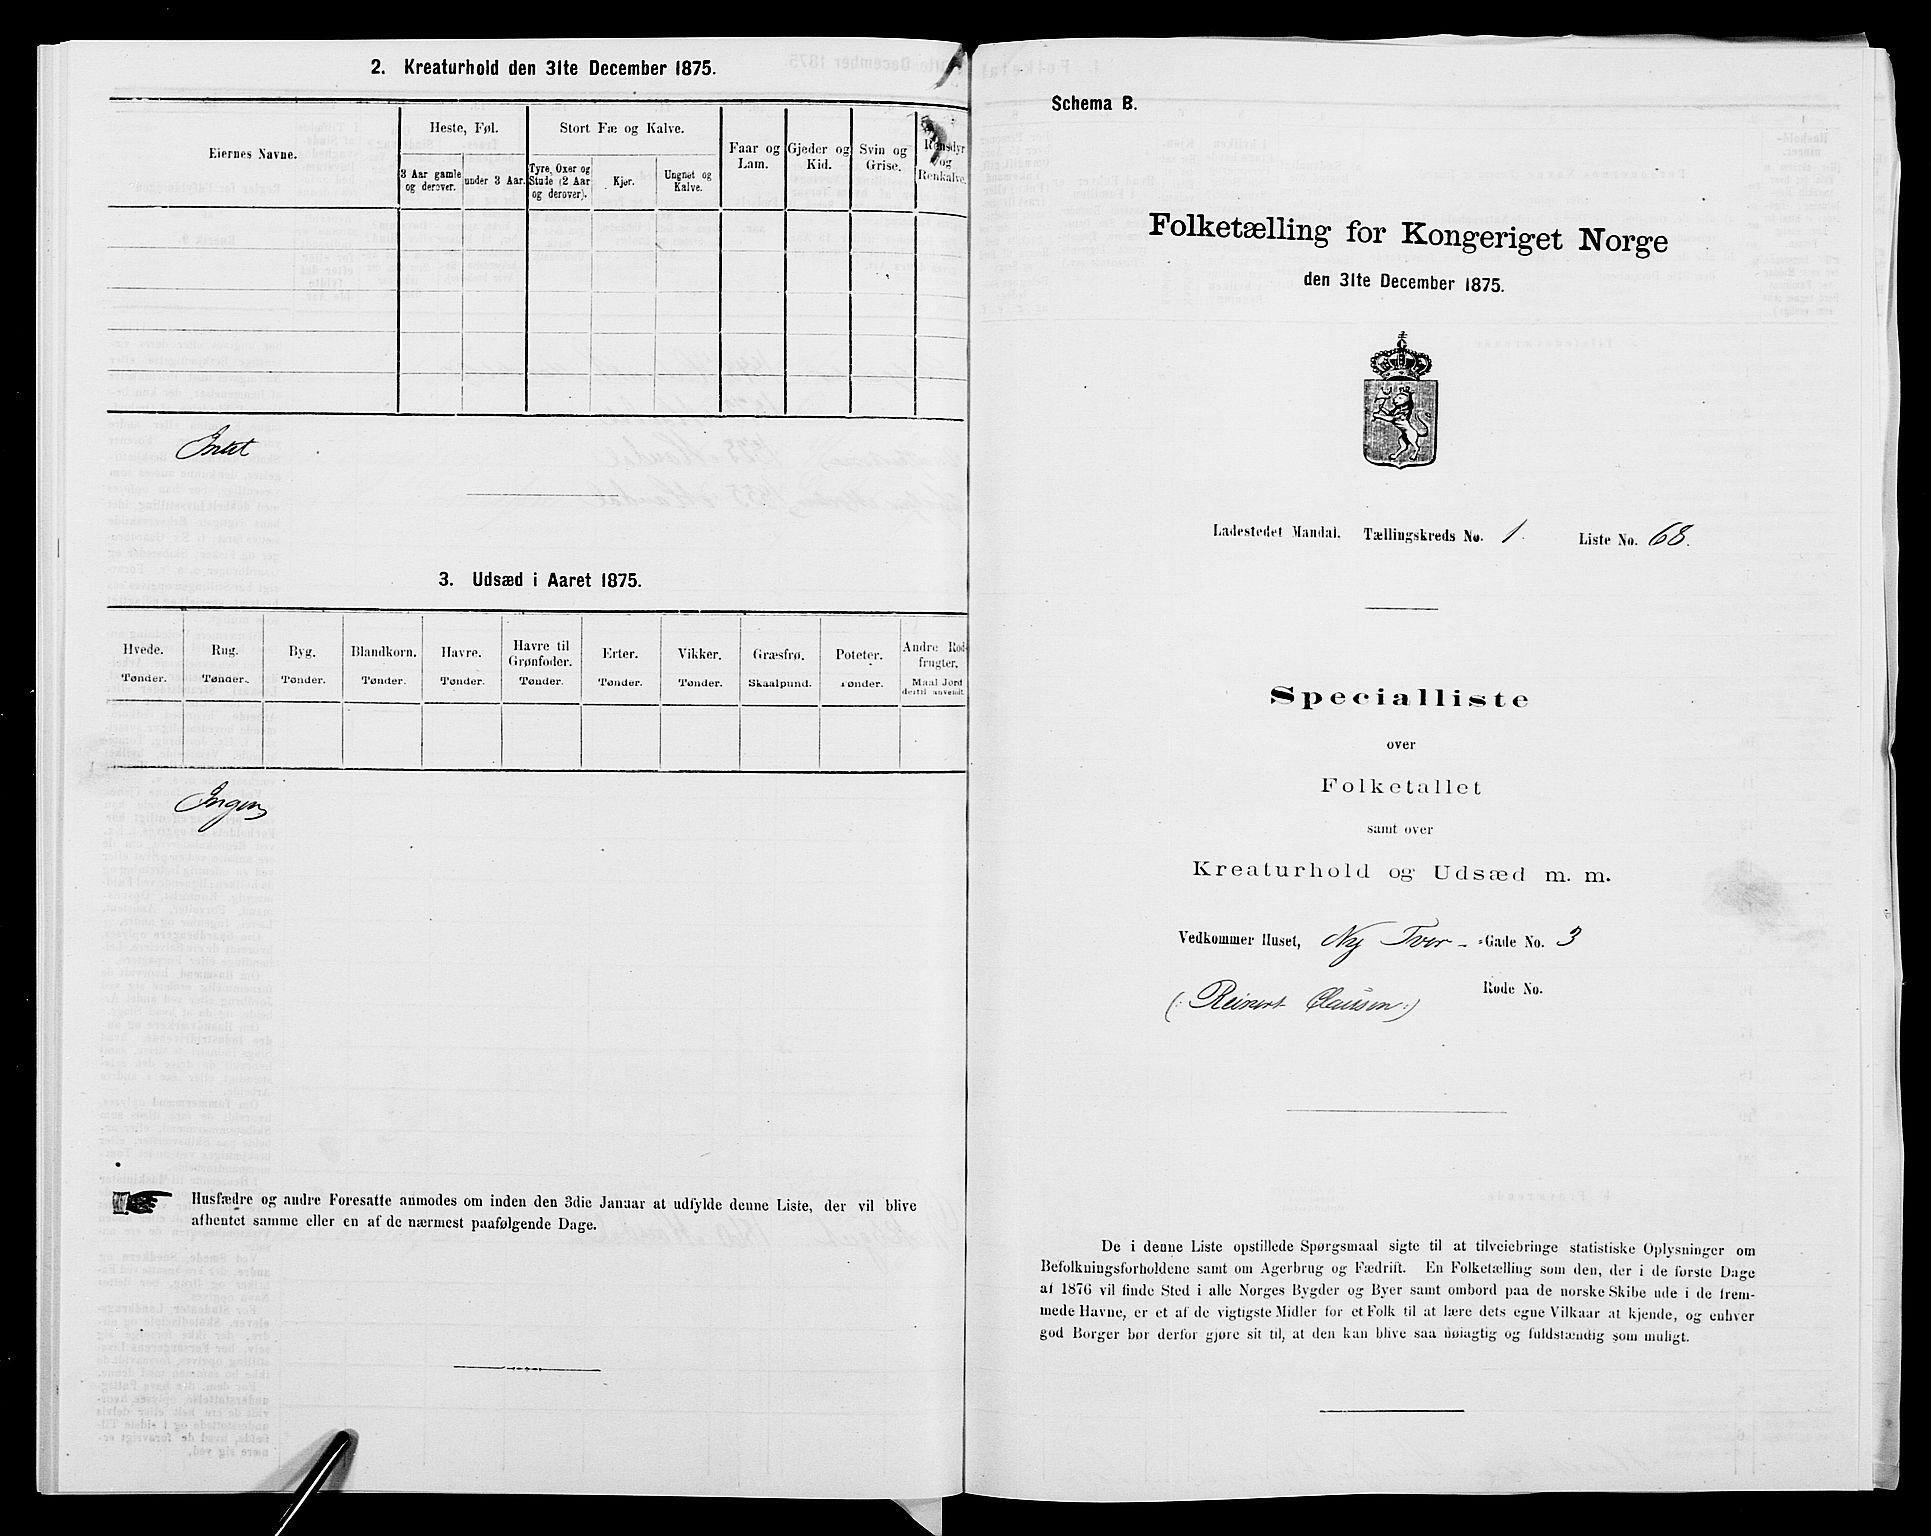 2. Kreaturhold den 31te December 1875.
Eiernes Navne.
Heste, Føl.
Stort Fæ og Kalve.
3 Aar gamle og derover.
under 3 Aar.
Tyre, Oxer og Stude (2 Aar og derover).
Kjør.
Ungnet og Kalve.
Faar og Lam.
Gjeder og Kid.
Svin og Grise.
Rensdyr og Renkalve.
Intet
3. Udsæd i Aaret 1875.
Hvede. Rug. Byg. Blandkorn. Havre. Havre til Grønfoder. Erter. Vikker. Græsfrø. Poteter. Andre Rodfrugter.
Tønder. Tønder. Tønder. Tønder. Tønder. Tønder. Tønder. Tønder. Skaalpund. Tønder. Maal Jord dertil anvendt.
Ingen
Husfædre og andre Foresatte anmodes om inden den 3die Januar at udfylde denne Liste, der vil blive
afhentet samme eller en af de nærmest paafølgende Dage.
Schema B.
Folketælling for Kongeriget Norge
den 31te December 1875.
Ladestedet Mandal. Tællingskreds No. 1. Liste No. 68.
Specialliste
over
Folketallet
samt over
Kreaturhold og Udsæd m. m.
Vedkommer Huset, Ny Tver- -Gade No. 3
(: Reinert Claussen :) Rode No.
De i denne Liste opstillede Spørgsmaal sigte til at tilveiebringe statistiske Oplysninger om
Befolkningsforholdene samt om Agerbrug og Fædrift. En Folketælling som den, der i de første Dage
af 1876 vil finde Sted i alle Norges Bygder og Byer samt ombord paa de norske Skibe ude i de frem-
mede Havne, er et af de vigtigste Midler for et Folk til at lære dets egne Vilkaar at kjende, og enhver
god Borger bør derfor gjøre sit til, at den kan blive saa nøiagtig og fuldstændig som muligt.